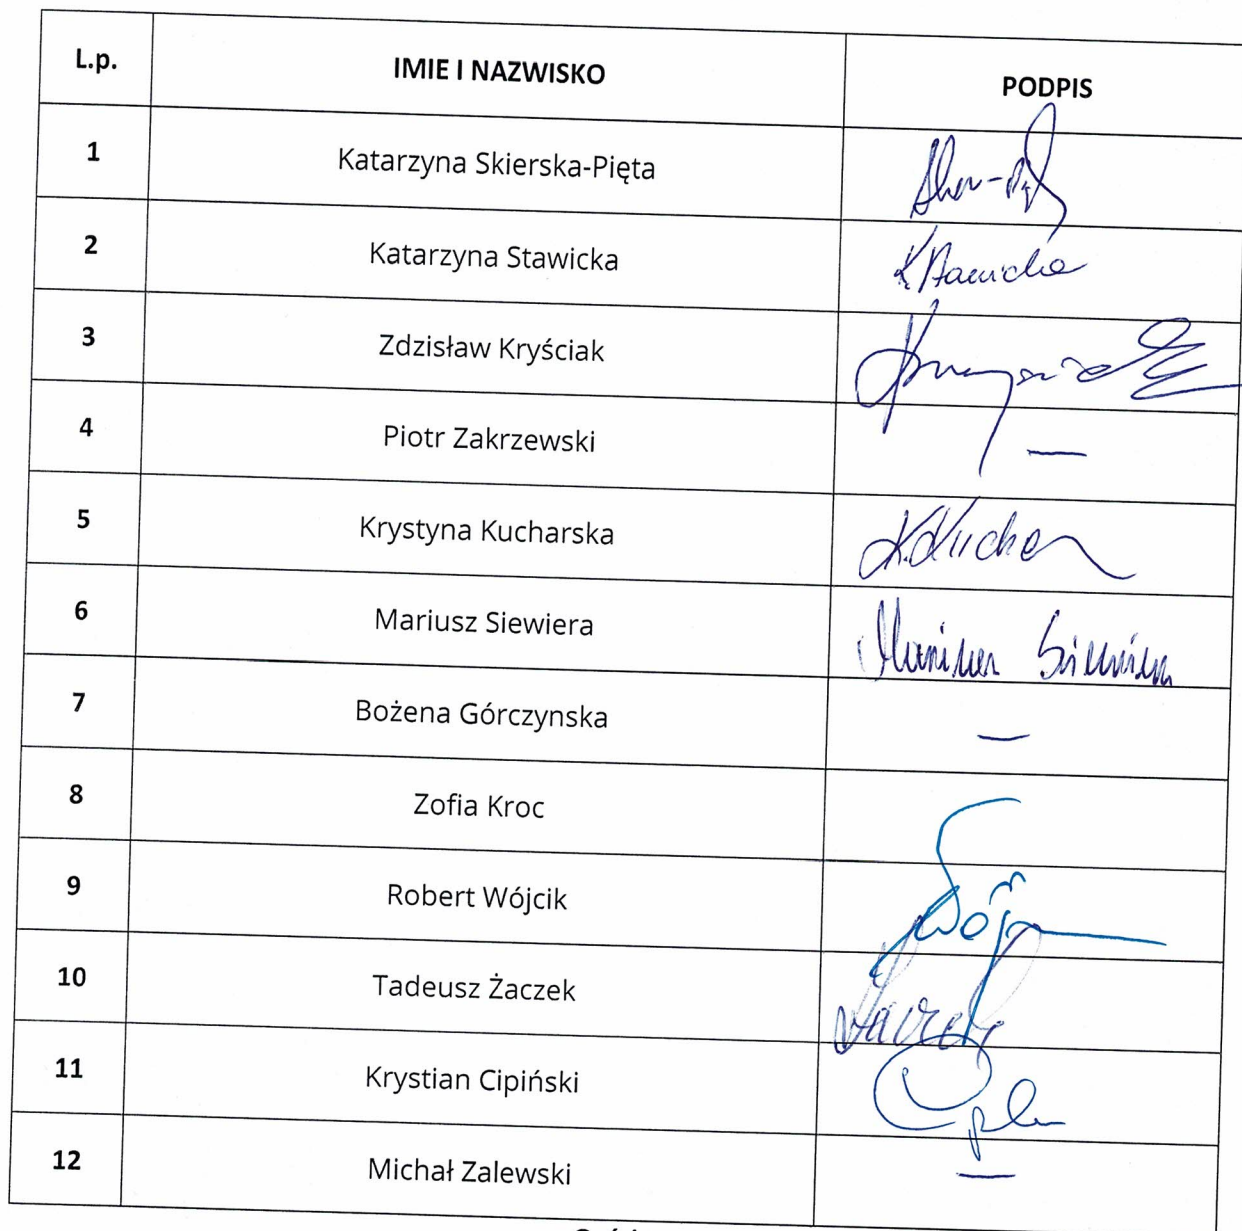 L.p. IMIE I NAZWISKO PODPIS
1 Katarzyna Skierska-Pięta
2 Katarzyna Stawicka K Stawicka
3 Zdzisław Kryściak
4 Piotr Zakrzewski —
5 Krystyna Kucharska K.Kuchar
6 Mariusz Siewiera Mariusz Siewiera
7 Bożena Górczynska —
8 Zofia Kroc
9 Robert Wójcik
10 Tadeusz Żaczek
11 Krystian Cipiński
12 Michał Zalewski —